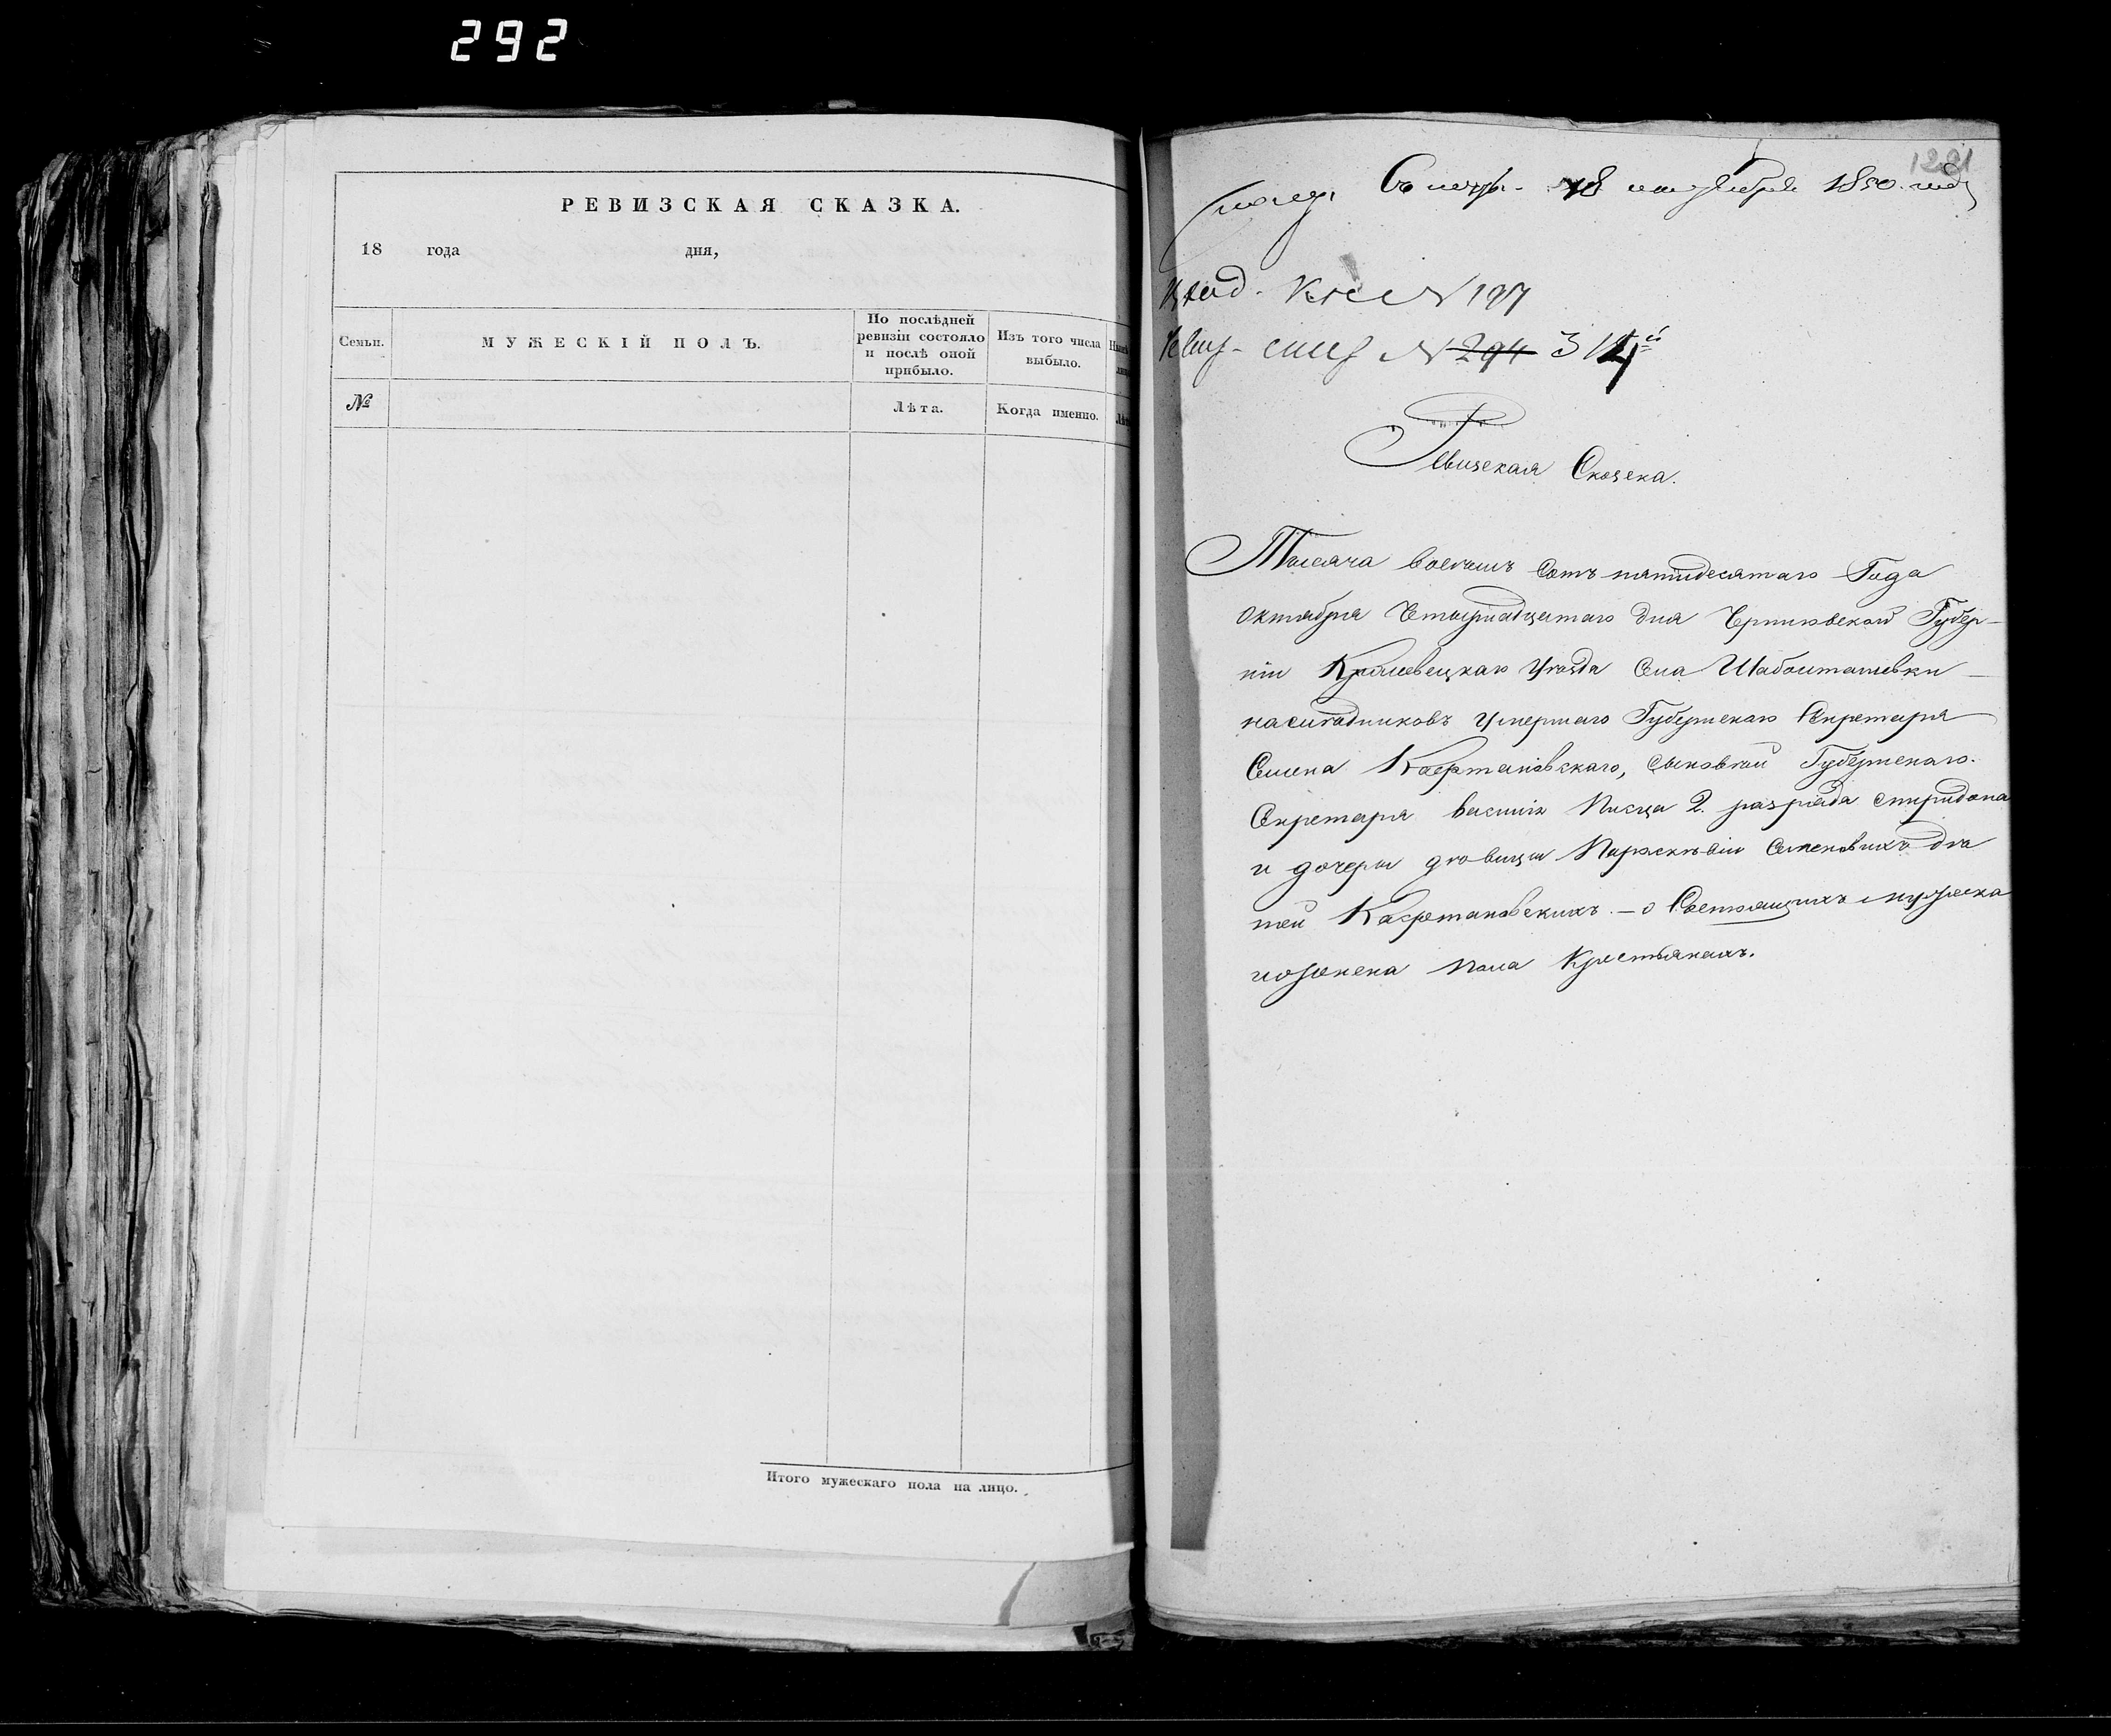 292
РЕВИЗСКАЯ СКАЗКА.
18 года дня,
Семьи.
МУЖЕСКІЙ ПОЛЪ.
По послѣдней
ревизіи состояло
и послѣ оной
прибыло.
Изъ того числа
выбыло.
№
Лѣта.
Когда именно.
Итого мужескаго пола на лицо.
1221
18 1850 года
№ 197
№ 294 314й
Ревизская Сказка.
Тысяча восемь сотъ пятидесятаго Года
Октября Четырнадцатаго дня Черниговской Губер-
ніи Кролевецкаго Уѣзда Села
наслѣдниковъ умершаго Губернскаго Секретаря
Семена Кафтановскаго, сыновей Губернскаго
Секретаря Писца 2. разряда Спиридона
и дочери дѣвицы Парасковіи Семеновыхъ дѣ
тей Кафтановскихъ. — о Состоящихъ мужеска
и женска пола Крестьянахъ.